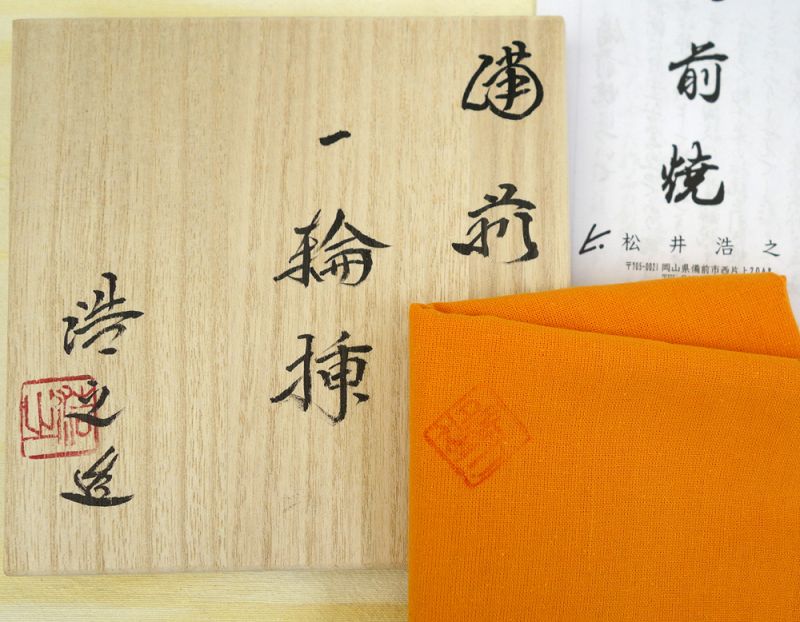 備前
一輪挿
浩之造
前焼
松井浩之
〒705-0021 岡山県備前市西片上